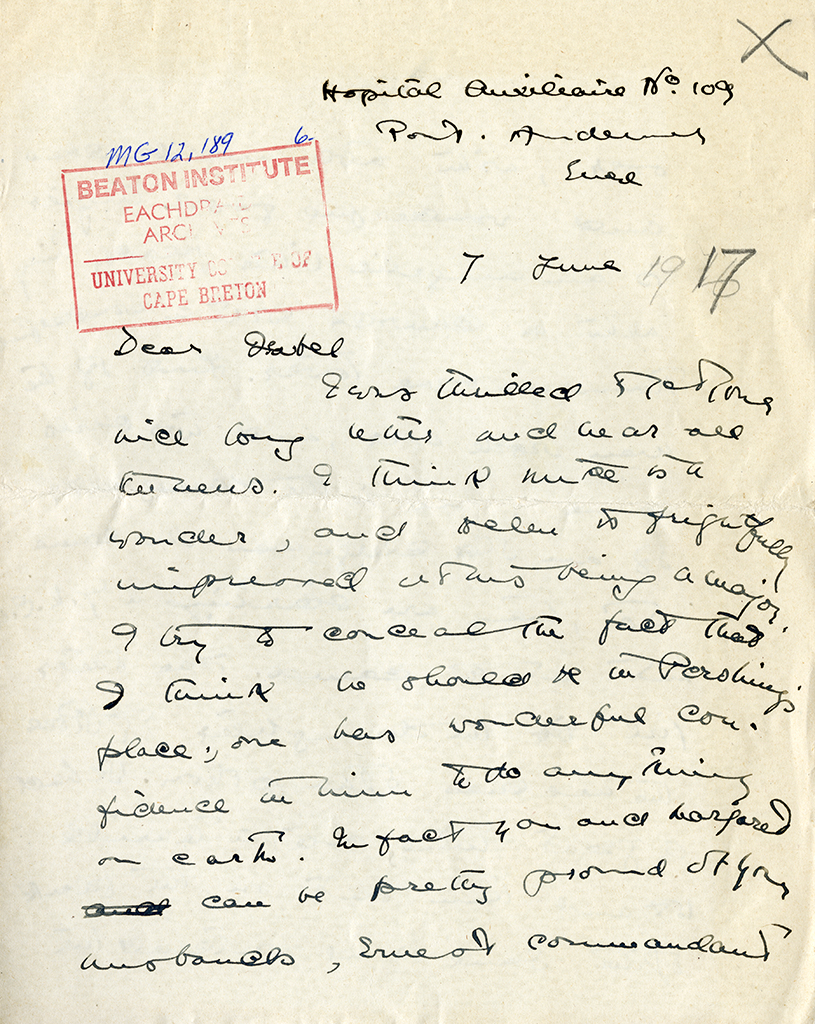 X
Hopital Auxiliaire No. 109
Pont. Audemer
Eure
MG 12, 189 6.
BEATON INSTITUTE
EACHDRAIDH
ARCHIVES
UNIVERSITY COLLEGE OF
CAPE BRETON
7 June 1917
Dear Isabel
I was thrilled to get your
nice long letter and hear all
the news. I think is a
wonder, and Helen is frightfully
impressed at his being a major.
I try to conceal the fact that
I think he should be in Pershing's
place., one has wonderful con-
fidence in him to do anything
on earth. In fact you and Margaret
can be pretty proud of your
husbands, Ernest commandant